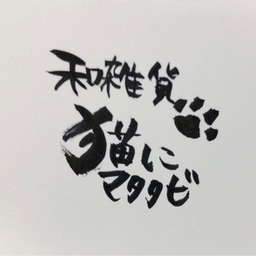 和雑貨
猫に
マタタビ